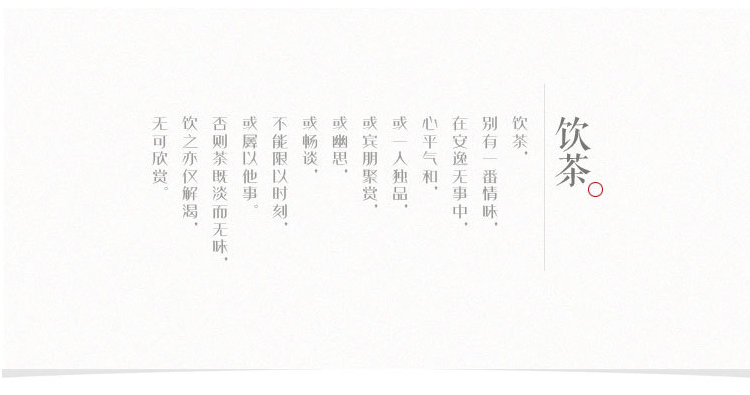 饮茶
饮茶，
别有一番情味，
在安逸无事中，
心平气和，
或一人独品，
或宾朋聚赏，
或幽思，
或畅谈，
不能限以时刻，
或羼以他事。
否则茶既淡而无味，
饮之亦仅解渴，
无可欣赏。